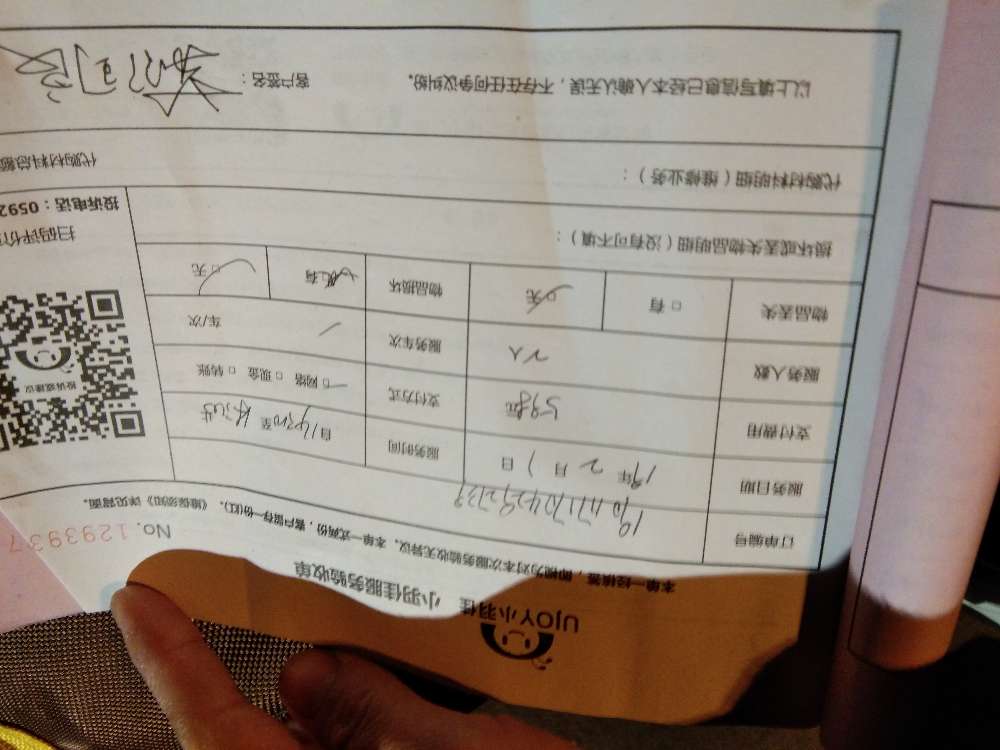 UJOY小羽佳 小羽佳服务验收单
本单一经填签，即视为对本次服务验收无异议。本单一式两份，客户留存一份(红)。《维保须知》详见背面。
No. 1293937
订单编号
服务日期 19年 2 月 1 日 服务时间 自14:30至
支付费用 598元 支付方式 □网络 □现金 □转账
服务人数 2人 服务车次 / 车/次
物品丢失 □有 □无 物品损坏 □有 □无
损坏或丢失物品明细（没有可不填）：
代购材料明细（维修业务）： 代购材料总额
以上填写信息已经本人确认无误，不存在任何争议纠纷。 客户签名：
扫码评价
投诉电话：0592
投诉或建议